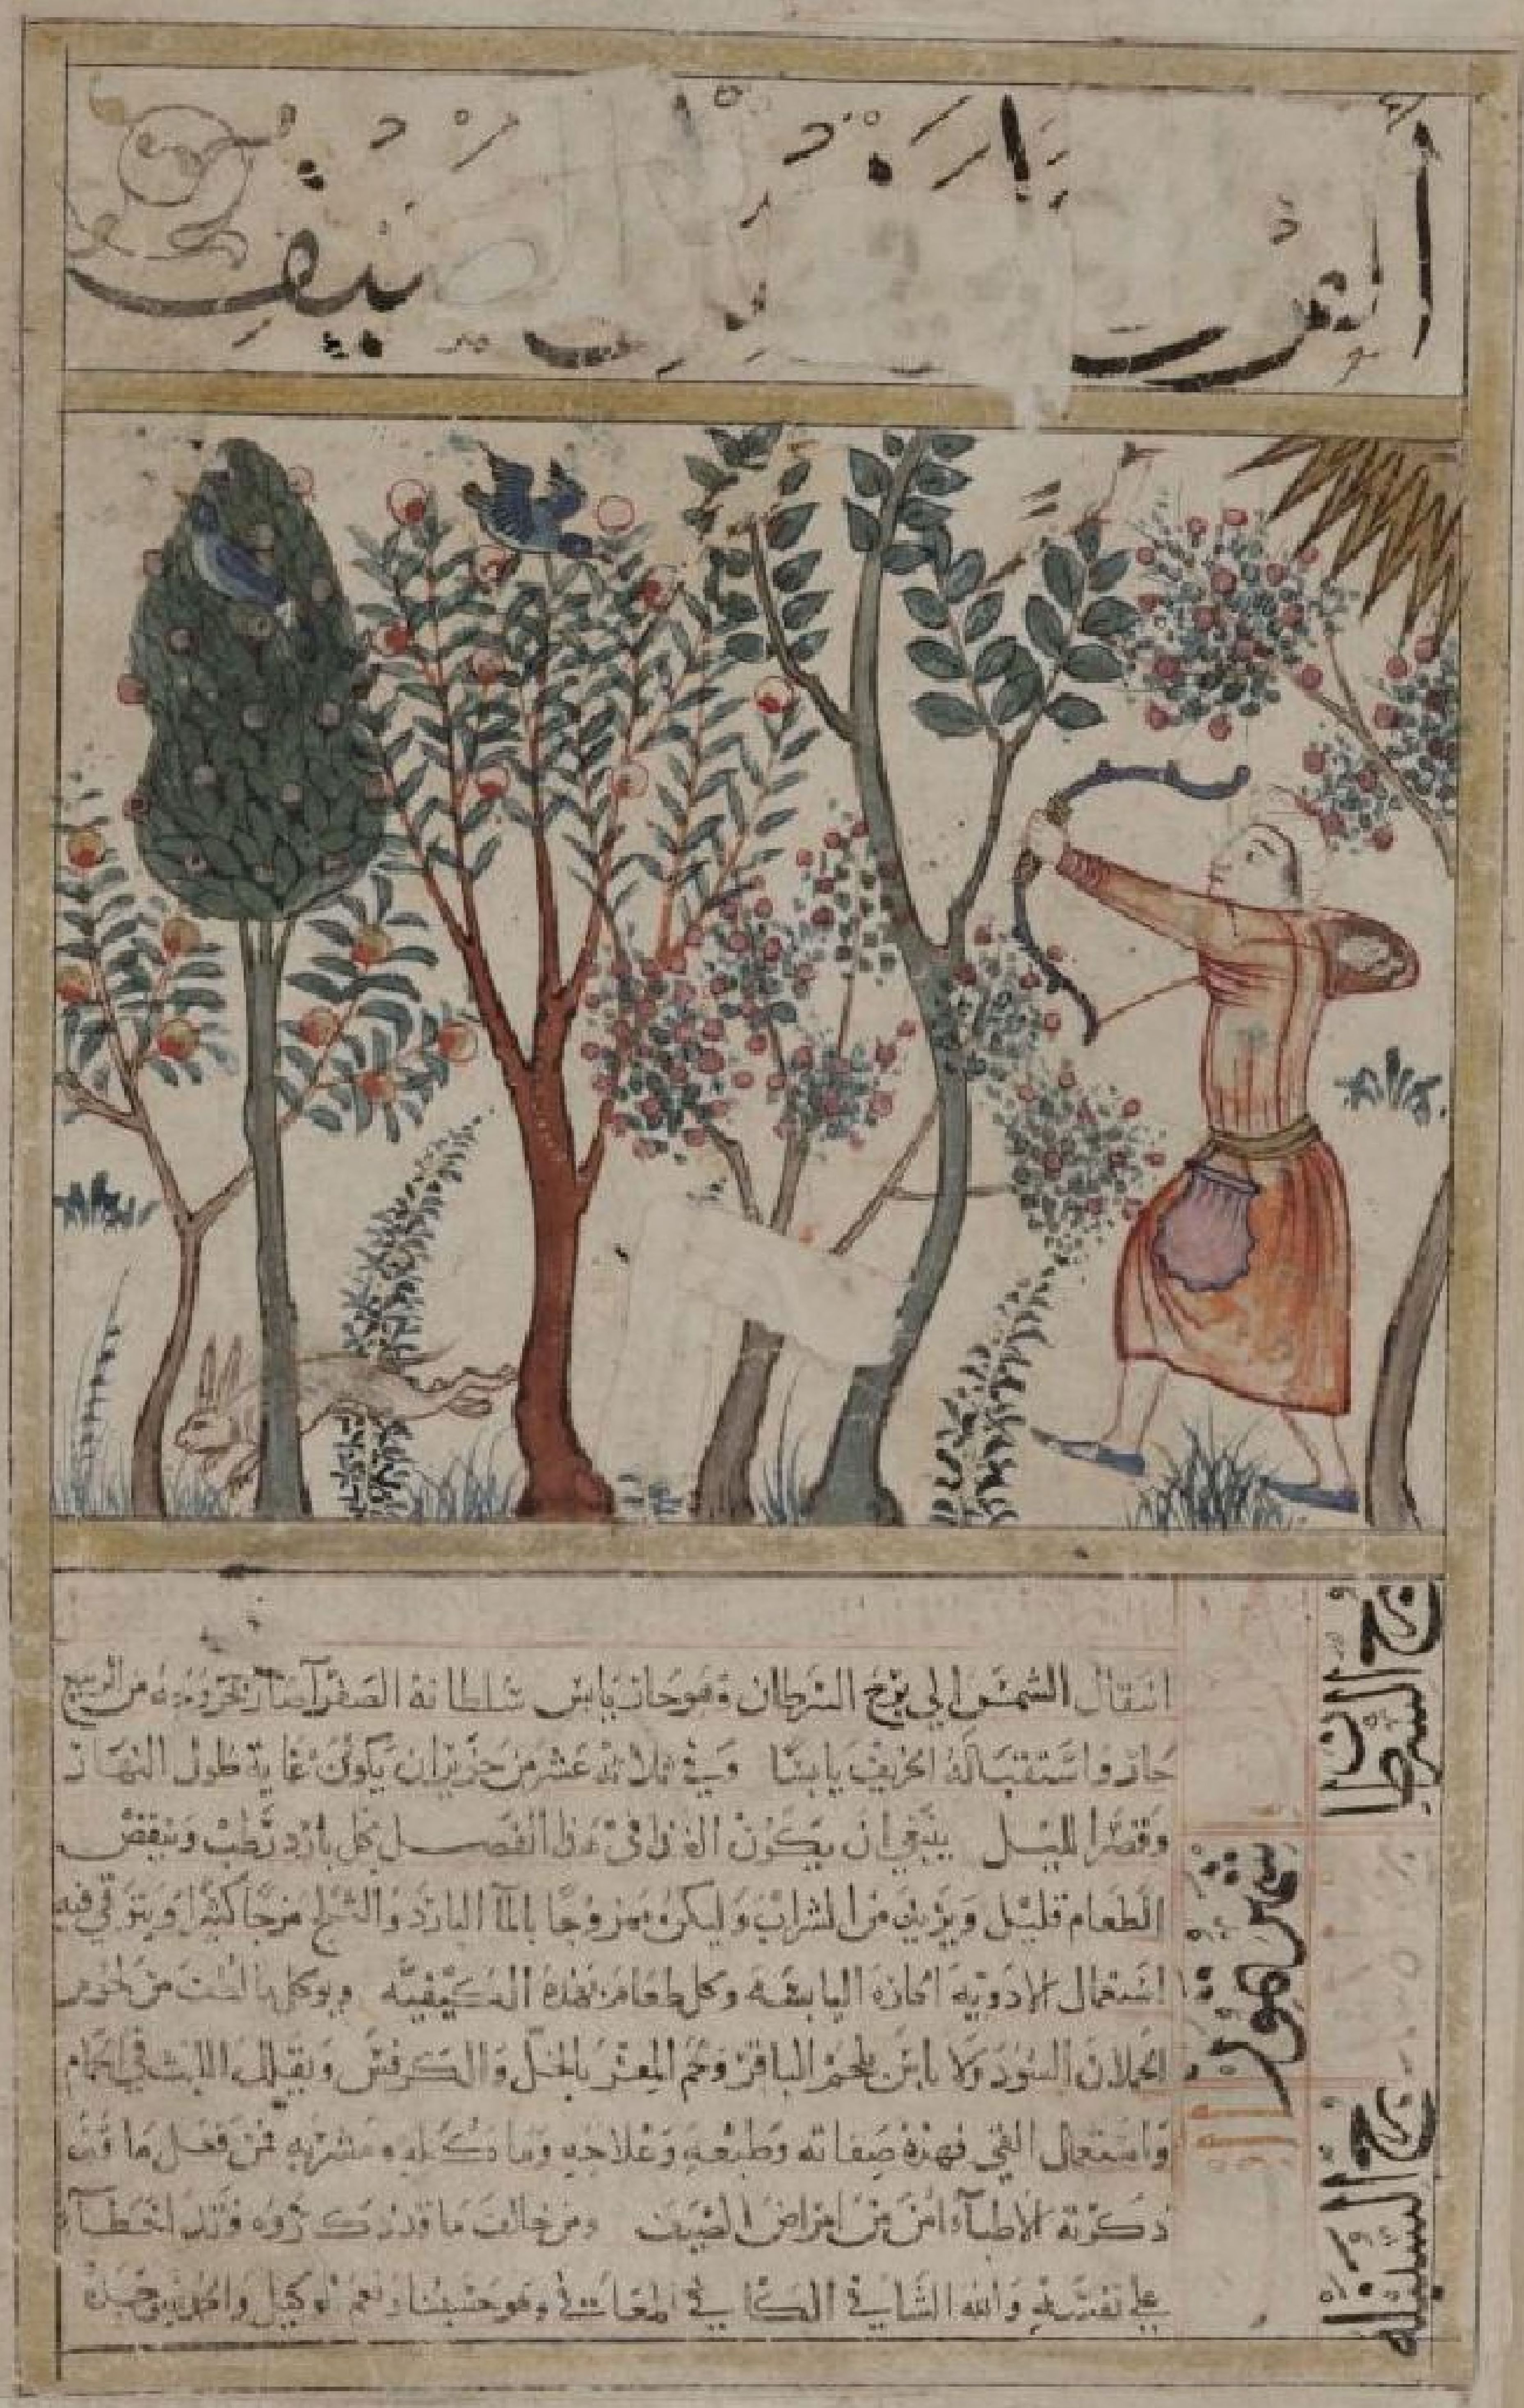 الصيف
انتقال الشمس الي برج السرطان وهو حار يابس سلطانه الصفرآ صار لخروجه من الربيع
حار واستقباله الخريف يابسًا وفي ثلاثة عشر من حزيران يكون غاية طول النهار
وقصر الليل ينبغي ان يكون الغذا في هذا الفصل بكل بارد رطب وينقص
الطعام قليل ويزيد من الشراب وليكن ممزوجا بالمآ البارد والثلج مزجا كثيرا ويتوقي فيه
استعمال الادويه الحاره اليابسه وكل طعام بهذه الكيفيه ويوكل ما لطف من لحوم
الحملان السود ولا باس بلحم الباقر ولحم المعز بالخل والكرفس ويقلل اللبث في الحمام
واستعمال القي فهذه صفاته وطبعه وعلاجه وما كله ومشربه فمن فعل ما قد
ذكرته الاطبآء امن من امراض الصيف ومن خالف ما قد ذكروه فقد اخطآء
علي نفسه والله الشافي الكافي المعافي وهو حسبنا ونعم الوكيل والحمد لله وحده
برج السرطان
برج السنبله